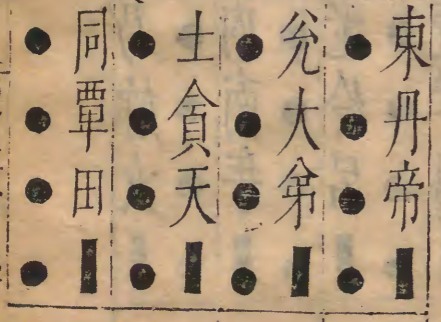 東丹帝▮
●●●●
兊大弚▮
●●●●
土貪天▮
●●●●
同覃田▮
●●●●